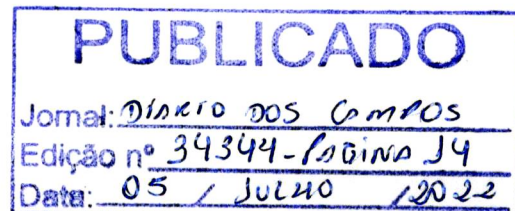 PUBLICADO
Jornal: DIÁRIO DOS CAMPOS
Edição nº 34344-PÁGINA 14
Data: 05 / JULHO / 2022